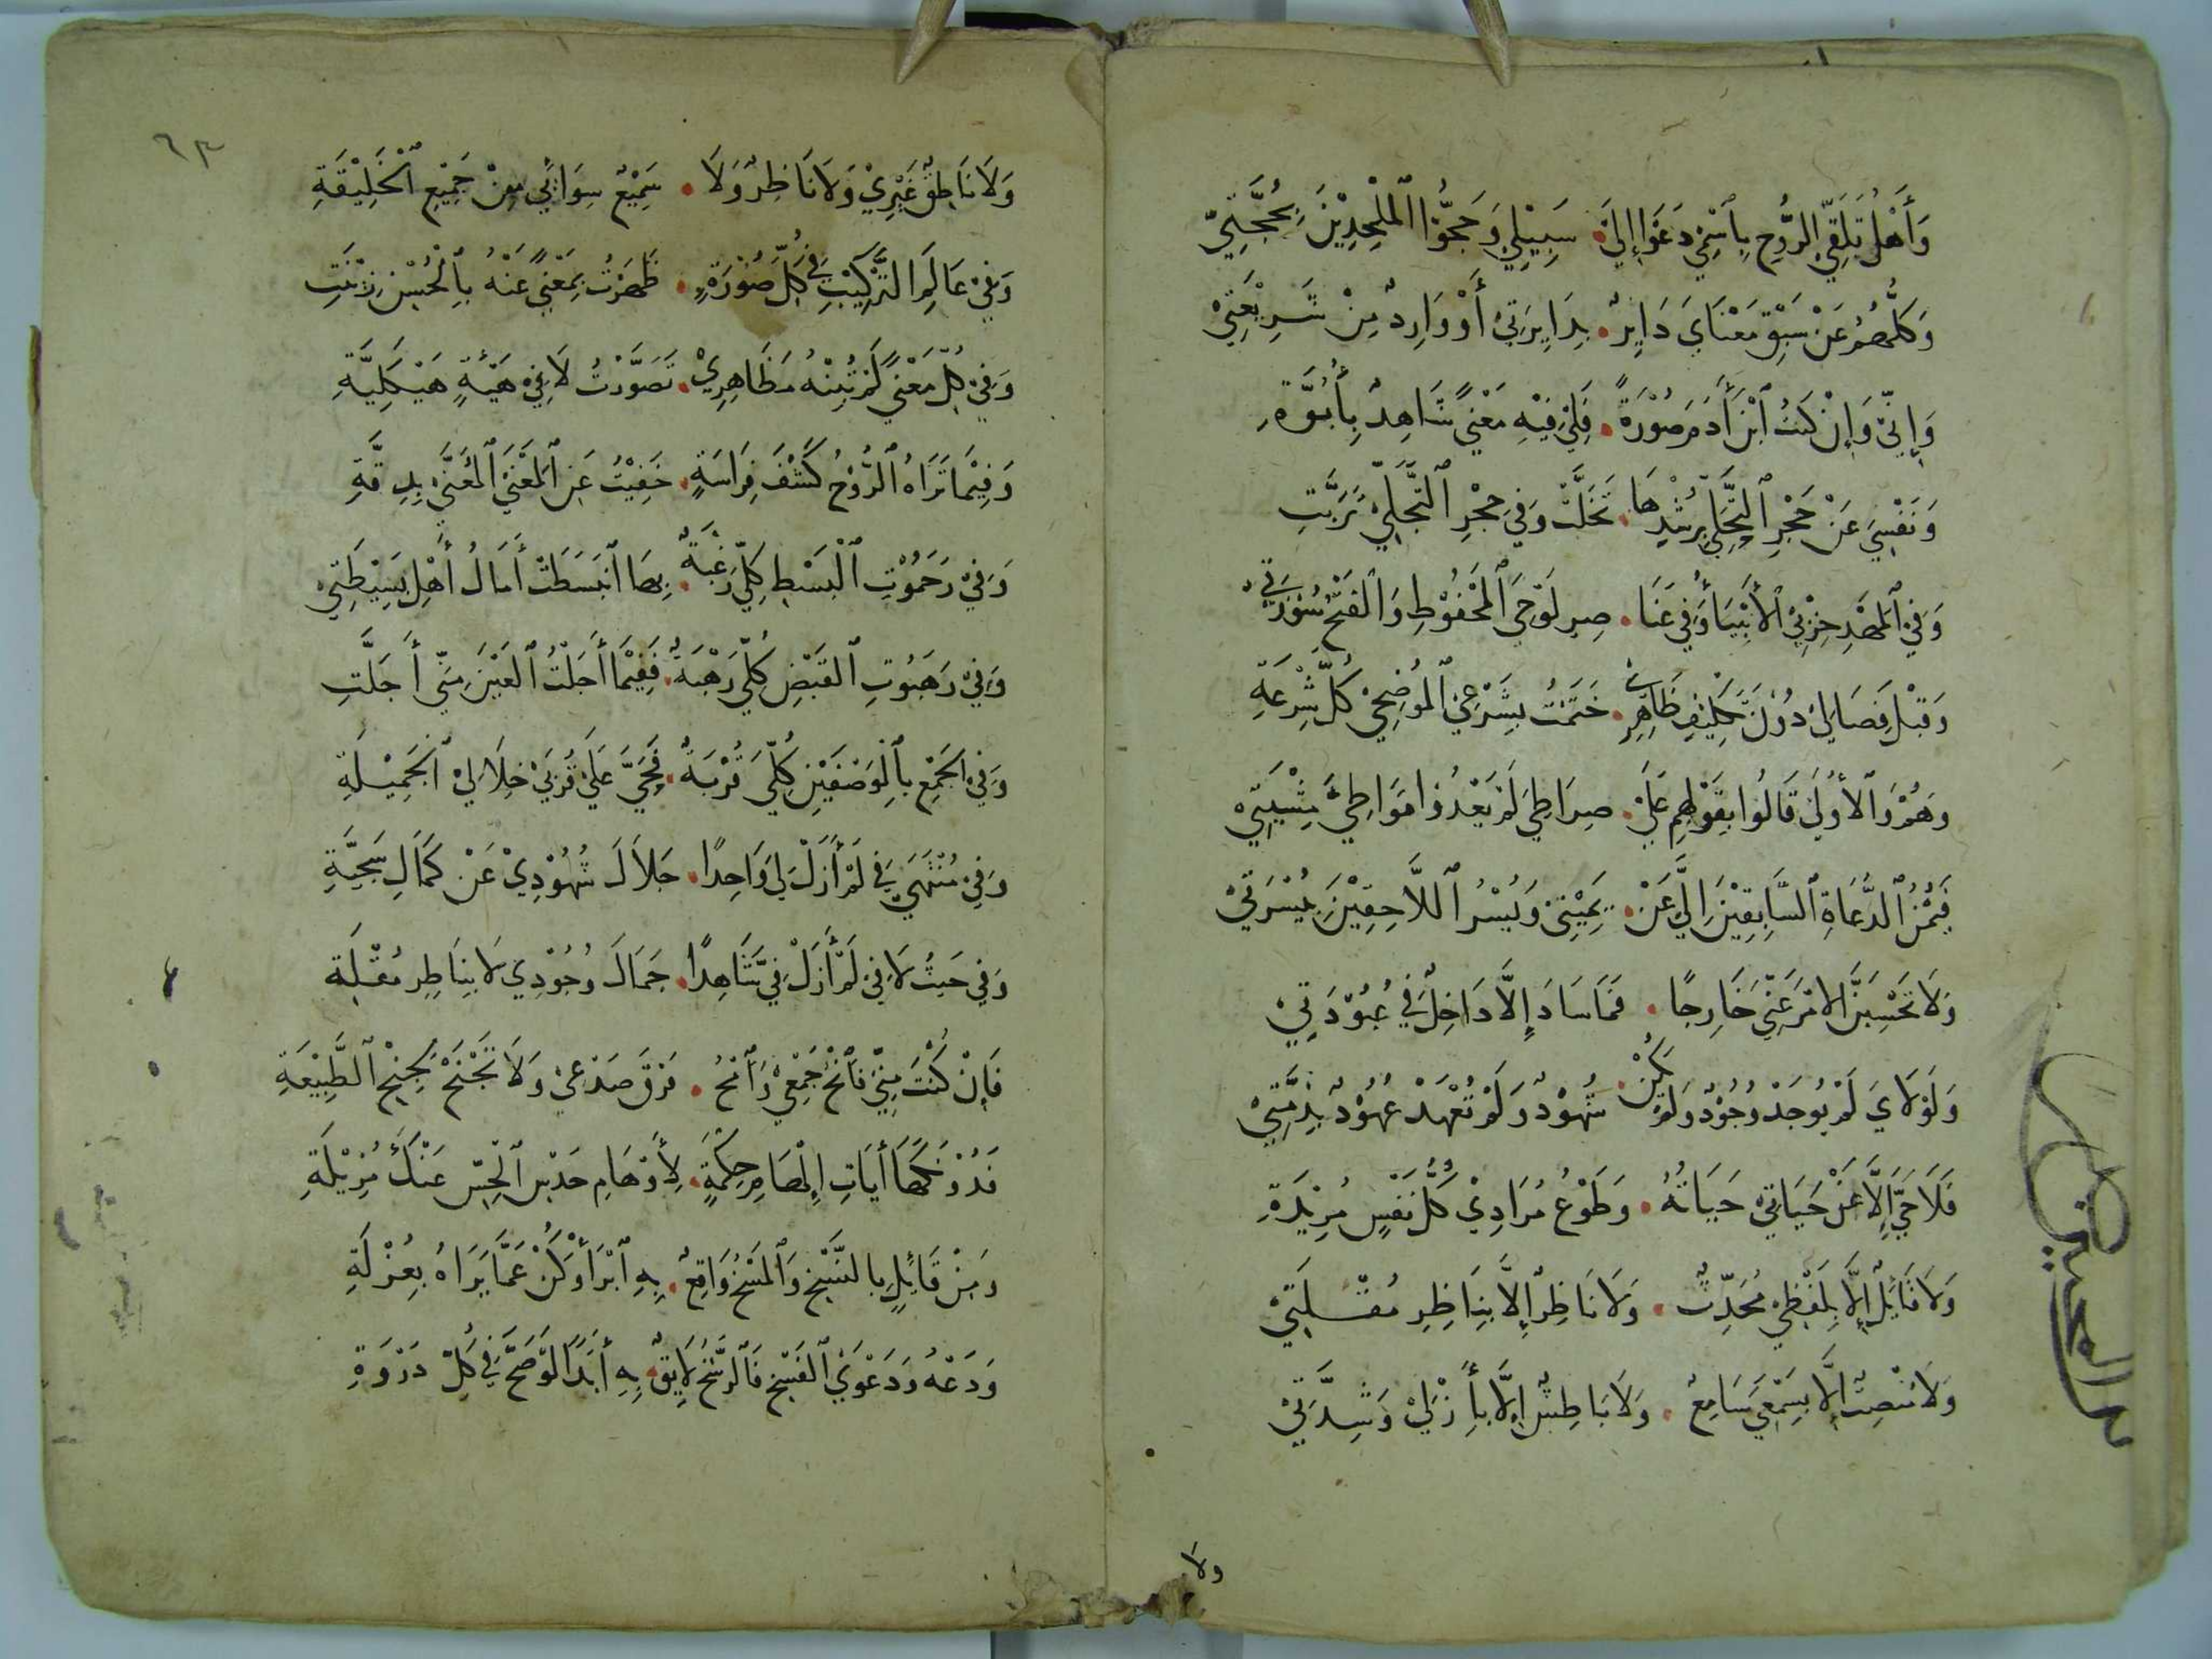 وَأَهْلُ تَلَقِّي الرُّوحِ بِاسْمِي دَعَوْا إِلَى سَبِيْلِي وَحَجُّوا الْمُلْحِدِيْنَ بِحُجَّتِيْ
وَكُلُّهُمُ عَنْ سَبْقِ مَعْنَايَ دَايِرٌ بِدَايِرَتِيْ أَوْ وَارِدٌ مِنْ شَرِيْعَتِيْ
وَإِنِّيْ وَإِنْ كُنْتُ ابْنَ أَدَمَ صُوْرَةً فَلِيْ فِيْهِ مَعْنًى شَاهِدٌ بِأُبُوَّةِ
وَنَفْسِيَ عَنْ حَجْرِ التَّحَلِّي بِرُشْدِهَا تَخَلَّتْ وَفِيْ حِجْرِ التَّجَلِّيْ تَرَبَّتِ
وَفِي الْمَهْدِ حِزْبِيْ الأَنْبِيَاءُ وَفِيْ عَنَا صِرِ لَوْحِيَ الْمَحْفُوْظِ وَالْفَتْحُ سُوْرَتِيْ
وَقَبْلَ فِصَالِيْ دُوْنَ تَكْلِيْفِ ظَاهِرِيْ خَتَمْتُ بِشَرْعِيْ الْمُوْضِحِيْ كُلَّ شِرْعَةِ
وَهُمْ وَالْأُولَى قَالُوا بِقَوْلِهِمِ عَلَىْ صِرَاطِيَ لَمْ يَعْدُوا مَوَاطِئَ مِشْيَتِيْ
فَيُمْنُ الدُّعَاةِ السَّابِقِيْنَ إِلَيَّ عَنْ يَمِيْنِيْ وَيُسْرُ اللَّاحِقِيْنَ بِيُسْرَتِيْ
وَلَا تَحْسِبَنَّ الامْرَ عَنِّيْ خَارِجًا فَمَا سَادَ إِلَّا دَاخِلٌ فِيْ عُبُوْدَتِيْ
وَلَوْلَايَ لَمْ يُوجَدْ وُجُوْدٌ وَلَمْ يَكُنْ شُهُوْدٌ وَلَمْ تُعْهَدْ عُهُوْدٌ بِذِمَّتِيْ
فَلَا حَيَّ إِلَّا عَنْ حَيَاتِيْ حَيَاتُهُ وَطَوْعُ مُرَادِيْ كُلُّ نَفْسٍ مُرِيْدَةِ
وَلَا قَائِلٌ إِلَّا بِلَفْظِيْ مُحَدِّثٌ وَلَا نَاظِرٌ إِلَّا بِنَاظِرِ مُقْلَتِيْ
وَلَا مُنْصِتٌ إِلَّا بِسَمْعِيَ سَامِعٌ وَلَا بَاطِشٌ إِلَّا بِأَزْلِيْ وَشِدَّتِيْ
ولا
٦٣
وَلَا نَاطِقٌ غَيْرِيْ وَلَا نَاظِرٌ وَلَا سَمِيْعٌ سِوَائِيْ مِنْ جَمِيْعِ الْخَلِيْقَةِ
وَفِيْ عَالَمِ التَّرْكِيْبِ فِيْ كُلِّ صُوْرَةٍ ظَهَرْتُ بِمَعْنًى عَنْهُ بِالْحُسْنِ زِيْنَتِ
وَفِيْ كُلِّ مَعْنًى لَمْ تُبِنْهُ مَظَاهِرِيْ تَصَوَّرْتُ لَا فِيْ هَيْئَةٍ هَيْكَلِيَّةِ
وَفِيْمَا تَرَاهُ الرُّوْحُ كَشْفَ فِرَاسَةٍ خَفِيْتُ عَنِ الْمَعْنَى الْمُعَنَّى بِدِقَّةِ
وَفِيْ رَحَمُوْتِ الْبَسْطِ كُلِّيَ رَغْبَةٌ بِهَا انْبَسَطَتْ أَمَالُ أَهْلِ بَسِيْطَتِيْ
وَفِيْ رَهَبُوْتِ الْقَبْضِ كُلِّيَ رَهْبَةٌ فَفِيْمَا أَجَلْتُ الْعَيْنَ مِنِّي أَجَلَّتِ
وَفِيْ الْجَمْعِ بِالْوَصْفَيْنِ كُلِّيَ قُرْبَةٌ فَحَيَّ عَلَىْ قُرْبَىْ خِلَالِيْ الْجَمِيْلَةِ
وَفِيْ مُنْتَهَى فِيْ لَمْ أَزَلْ لِيْ وَاحِدًا جَلَالَ شُهُوْدِيْ عَنْ كَمَالِ سَجِيَّةِ
وَفِيْ حَيْثُ لَا فِيْ لَمْ أَزَلْ فِيَّ شَاهِدًا جَمَالَ وُجُوْدِيْ لَا بِنَاظِرِ مُقْلَةِ
فَإِنْ كُنْتَ مِنِّيْ فَانْحُ جَمْعِيْ وَامْحُ فَرْقَ صَدْعِيْ وَلَا تَجْنَحْ لِجِنْحِ الطَّبِيْعَةِ
فَدُوْنَكَهَا أَيَاتِ إِلْهَامِ حِكْمَةٍ لِأَوْهَامِ حَدْسِ الْحِسِّ عَنْكَ مُزِيْلَةِ
وَمِنْ قَائِلٍ بِالنَّسْخِ وَالْمَسْخُ وَاقِعٌ بِهِ ابْرَأْ وَكُنْ عَمَّا يَرَاهُ بِعُزْلَةِ
وَدَعْهُ وَدَعْوَى الْفَسْخِ فَالرَّسْخُ لَايِقٌ بِهِ أَبَدًا لَوْ صَحَّ فِيْ كُلِّ دَوْرَةِ